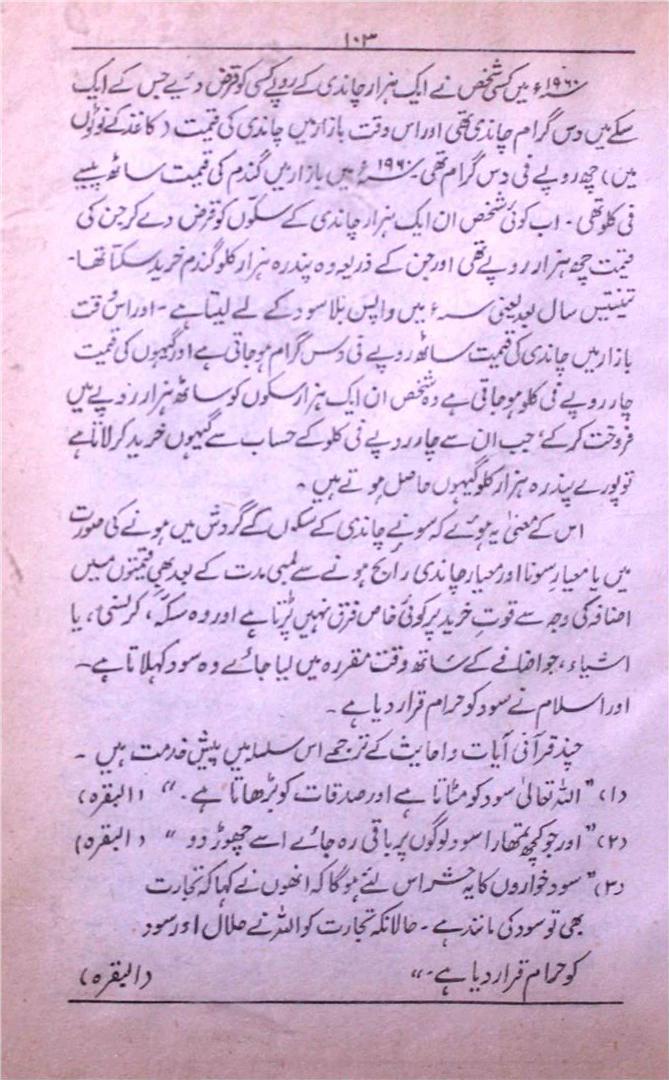 ۱۰۳
۱۹۶۰ء میں کسی شخص نے ایک ہزار چاندی کے روپے کسی کو قرض دیے جس کے ایک
سکے میں دس گرام چاندی تھی اور اس وقت بازار میں چاندی کی قیمت (کاغذ کے نوٹوں
میں) چھ روپے فی دس گرام تھی ۱۹۶۰ء میں بازار میں گندم کی قیمت ساٹھ پیسے
فی کلو تھی - اب کوئی شخص ان ایک ہزار چاندی کے سکوں کو قرض دے کر جن کی
قیمت چھ ہزار روپے تھی اور جن کے ذریعہ وہ پندرہ ہزار کلو گندم خرید سکتا تھا -
تینتیس سال بعد یعنی سنہء میں واپس بلا سود کے لے لیتا ہے - اور اس وقت
بازار میں چاندی کی قیمت ساٹھ روپے فی دس گرام ہو جاتی ہے اور گیہوں کی قیمت
چار روپے فی کلو ہو جاتی ہے وہ شخص ان ایک ہزار سکوں کو ساٹھ ہزار روپے میں
فروخت کر کے ، جب ان سے چار روپے فی کلو کے حساب سے گیہوں خرید کر لاتا ہے
تو پورے پندرہ ہزار کلو گیہوں حاصل ہوتے ہیں ۔
اس کے معنی یہ ہوئے کہ سونے چاندی کے سکوں کے گردش میں ہونے کی صورت
میں یا معیار سونا اور معیار چاندی رایج ہونے سے لمبی مدت کے بعد بھی قیمتوں میں
اضافہ کی وجہ سے قوتِ خرید پر کوئی خاص فرق نہیں پڑتا ہے اور وہ سکہ ، کرنسی ، یا
اشیاء ، جو اضافے کے ساتھ وقت مقررہ میں لیا جائے وہ سود کہلاتا ہے -
اور اسلام نے سود کو حرام قرار دیا ہے ۔
چند قرآنی آیات و احادیث کے ترجمے اس سلسلہ میں پیش خدمت ہیں ۔
(۱) "اللہ تعالیٰ سود کو مٹاتا ہے اور صدقات کو بڑھاتا ہے ۔" (البقرہ)
(۲) "اور جو کچھ تمھارا سود لوگوں پر باقی رہ جائے اسے چھوڑ دو" (البقرہ)
(۳) "سود خواروں کا یہ حشر اس لئے ہوگا کہ انھوں نے کہا کہ تجارت
بھی تو سود کی مانند ہے - حالانکہ تجارت کو اللہ نے حلال اور سود
کو حرام قرار دیا ہے ۔" (البقرہ)